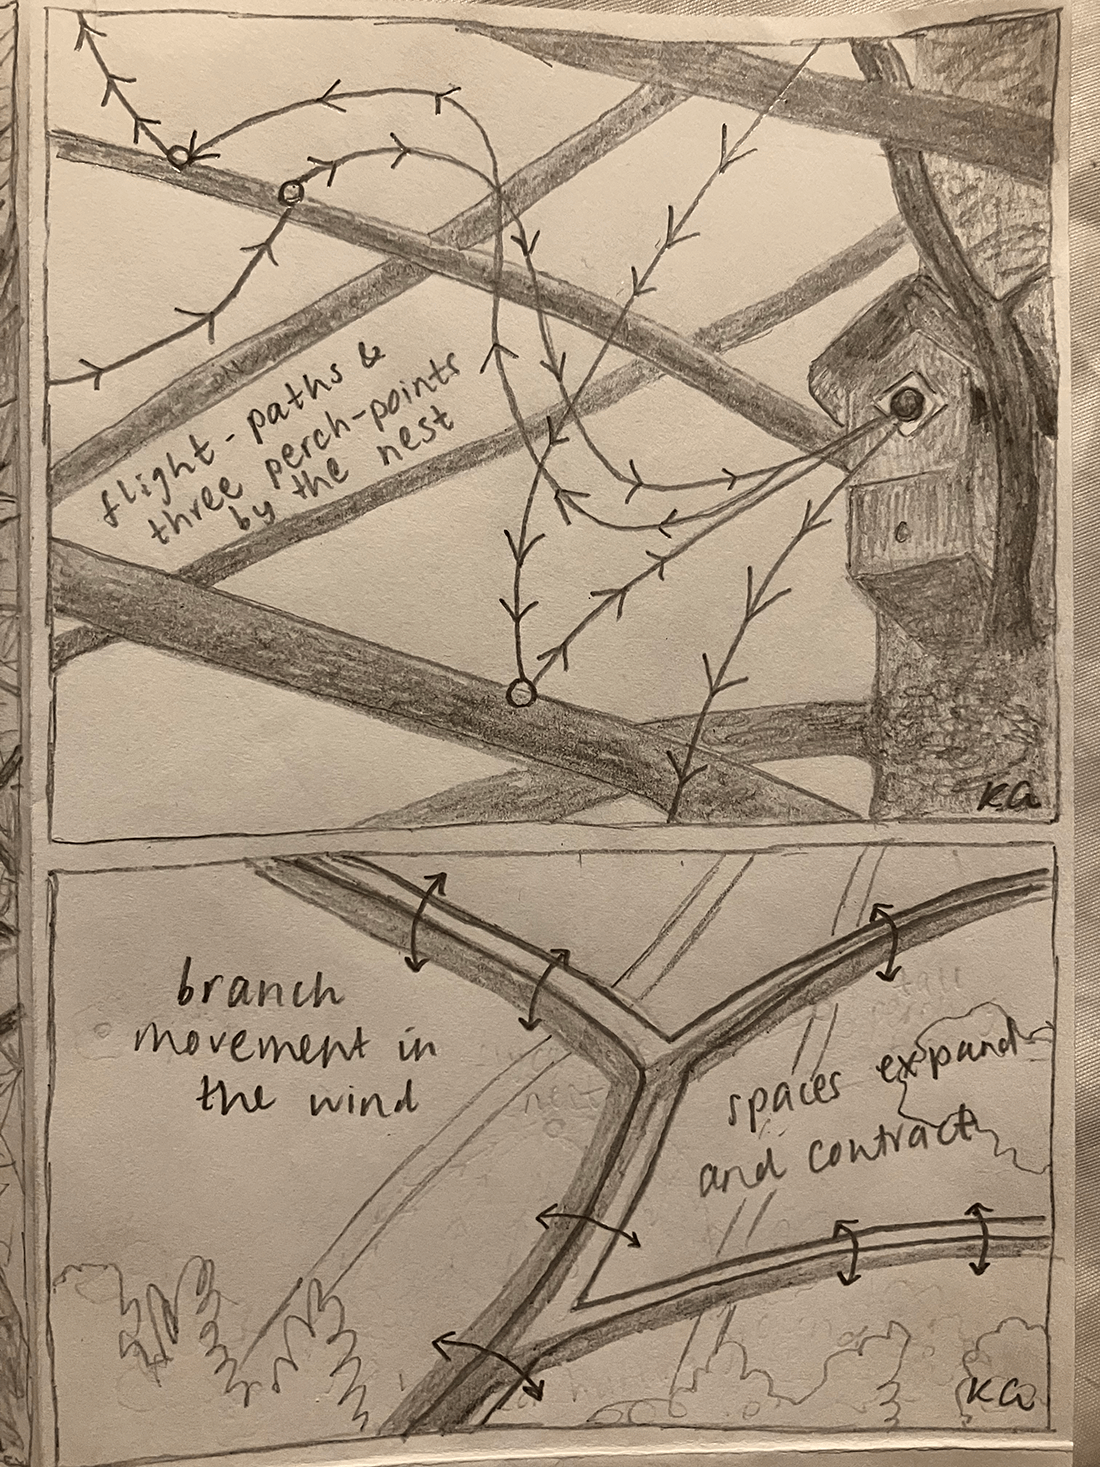 flight-paths &
three perch-points
by the nest
KA
branch
movement in
the wind
spaces expand
and contract
KA